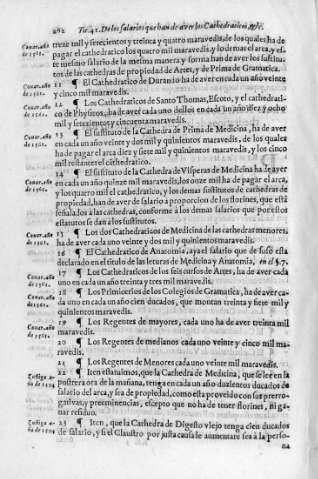 262 Tit. 41. De los salarios que han de aver los Cathedraticos, &c.
treze mil y setecientos y treinta y quatro maravedis, de los quales ha de
pagar el cathedratico los quatro mil maravedis, y lo demas el arca, y es-
te mesmo salario de la mesma manera y forma han de aver los sustitu-
tos de las cathedras de propiedad de Artes, y de Prima de Gramatica.
11 ¶ El Cathedratico de Durando ha de aver en cada un año veinte
y cinco mil maravedis.
12 ¶ Los Cathedraticos de Santo Thomas, Escoto, y el cathedrati-
co de Physicos, ha de aver cada uno dellos en cada un año y ocho
mil y trecientos y cincuenta maravedis.
13 ¶ El sustituto de la Cathedra de Prima de Medicina, ha de aver
en cada un año veinte y dos mil y quinientos maravedis, de los quales
ha de pagar el arca diez y siete mil y quinientos maravedis, y los cinco
mil restantes el cathedratico.
14 ¶ El sustituto de la Cathedra de Visperas de Medicina ha de aver
en cada un año quinze mil maravedis, los onze mil ha de pagar el arca,
y los quatro mil el cathedratico, y los demas sustitutos de cathedras de
propiedad, han de aver de salario a proporcion de los florines, que está
señalados a las cathedras, conforme a los demas salarios que por los
estatutos se dan a los sustitutos.
15 ¶ Los dos Cathedraticos de Medicina de las cathedras menores,
ha de aver cada uno veinte y dos mil y quinientos maravedis.
16 ¶ El Cathedratico de Anatomia, aya el salario que le está
declarado en el titulo de las letures de Medicina y Anatomia, en el §. 7.
17 ¶ Los Cathedraticos de los seis cursos de Artes, ha de aver cada
uno en cada un año treinta y tres mil maravedis.
18 ¶ Los Primicerios de los Colegios de Gramatica, ha de aver ca-
da uno en cada un año cien ducados, que montan treinta y siete mil y
quinientos maravedis.
19 ¶ Los Regentes de mayores, cada uno ha de aver treinta mil
maravedis.
20 ¶ Los Regentes de medianos cada uno veinte y cinco mil ma-
ravedis.
21 ¶ Los Regentes de Menores cada uno veinte mil maravedis.
22 ¶ Iten estatuimos, que la Cathedra de Medicina, que se lee en la
postrera ora de la mañana, tenga en cada un año duzientos ducados de
salario del arca, y sea de propiedad, como esta proveido con sus prerro-
gativas, y preeminencias, ecepto que no ha de tener florines, ni ga-
nar residuo.
23 ¶ Iten, que la Cathedra de Digesto viejo tenga cien ducados
de salario, y si el Claustro por justa causa le aumentare sea à la perso-
na